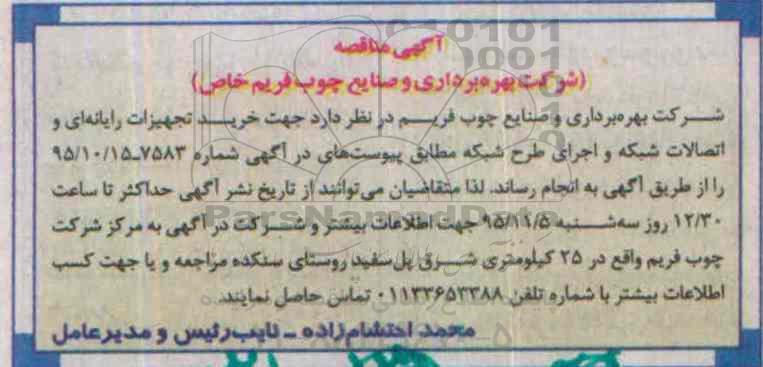 آگهی مناقصه
(شرکت بهره‌برداری و صنایع چوب فریم خاص)
شــرکت بهره‌برداری و صنایع چوب فریــم در نظر دارد جهت خریــد تجهیزات رایانه‌ای و
اتصالات شبکه و اجرای طرح شبکه مطابق پیوست‌های در آگهی شماره ۷۵۸۳ـ۹۵/۱۰/۱۵
را از طریق آگهی به انجام رساند. لذا متقاضیان می‌توانند از تاریخ نشر آگهی حداکثر تا ساعت
۱۲/۳۰ روز سه‌شــنبه ۹۵/۱۱/۵ جهت اطلاعات بیشتر و شــرکت در آگهی به مرکز شرکت
چوب فریم واقع در ۲۵ کیلومتری شــرق پل‌سفید روستای سنکده مراجعه و یا جهت کسب
اطلاعات بیشتر با شماره تلفن ۰۱۱۳۳۶۵۳۳۸۸ تماس حاصل نمایند.
محمد احتشام‌زاده ـ نایب‌رئیس و مدیرعامل